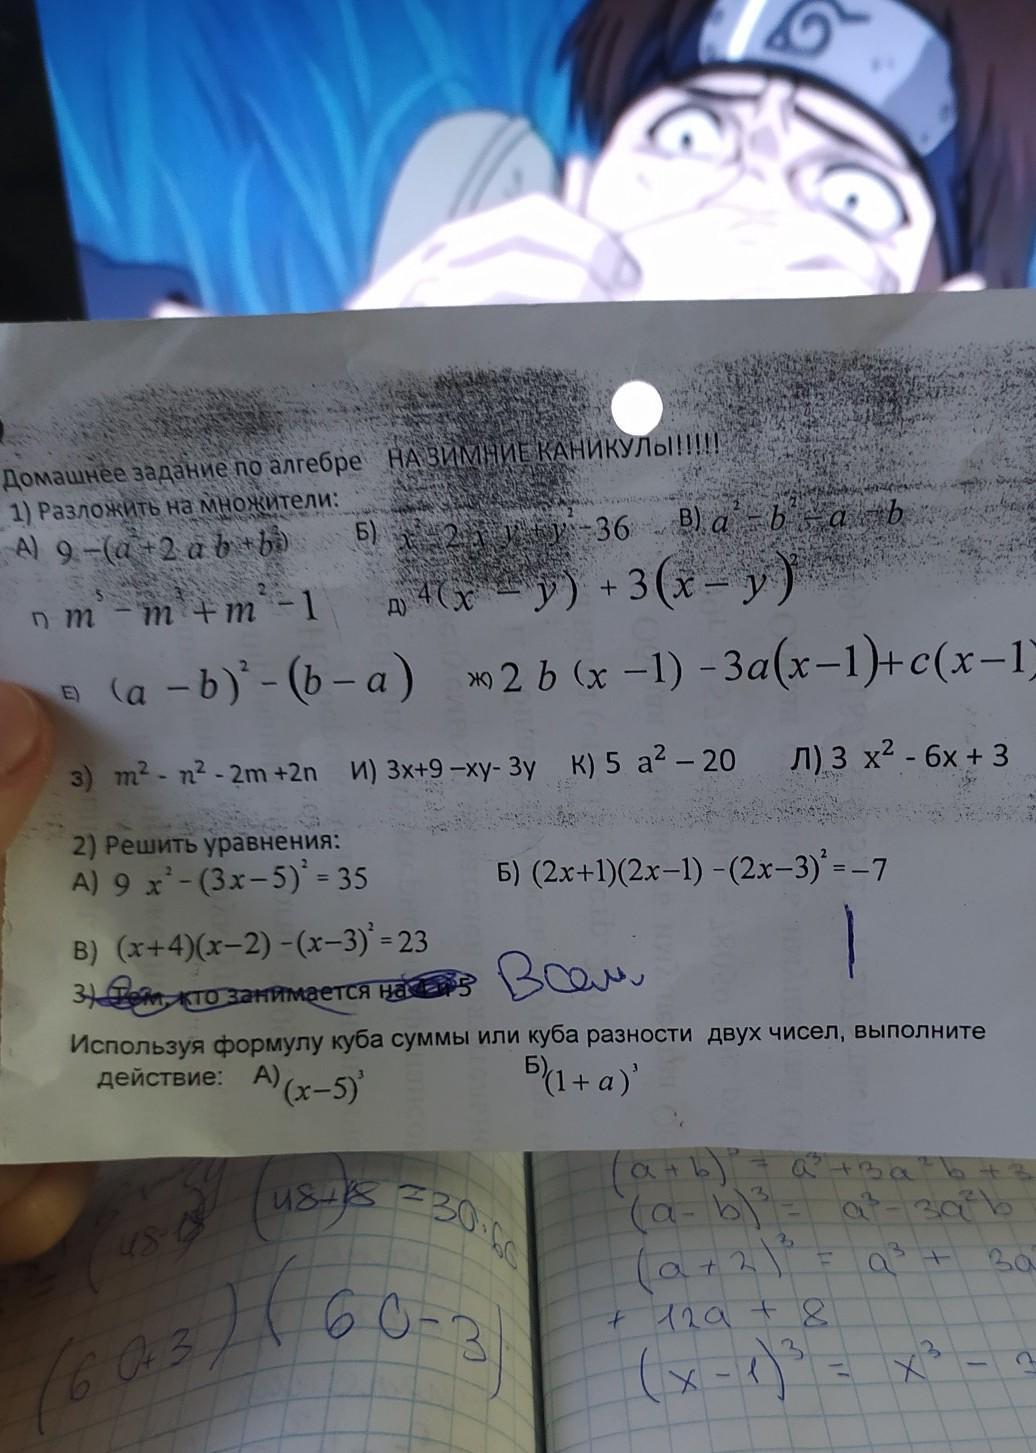 Домашнее задание по алгебре НА ЗИМНИЕ КАНИКУЛЫ!!!!!!
1) Разложить на множители:
А) 9 −(a²+2 a b +b²) Б) x²−2 x y + y² −36 В) a² − b² − a − b
m⁵ − m³ + m² − 1 Д) 4(x − y) + 3(x − y)²
Е) (a − b)² − (b − a) Ж) 2 b (x −1) −3a(x−1)+c(x−1)
З) m² - n² - 2m +2n И) 3x+9 –xy- 3y К) 5 a² – 20 Л) 3 x² - 6x + 3
2) Решить уравнения:
А) 9 x² −(3x−5)² = 35 Б) (2x+1)(2x−1) −(2x−3)² = −7
В) (x+4)(x−2) −(x−3)² = 23
3) Тем, кто занимается на 4 и 5 Всем
Используя формулу куба суммы или куба разности двух чисел, выполните
действие: А) (x−5)³ Б) (1+ a)³
(a+b)³ = a³+3a²b+3
(48+18 =30·60 (a-b)³ = a³-3a²b
(a+2)³ = a³ + 3a
(60+3)(60-3) + 12a + 8
(x-1)³ = x³ -